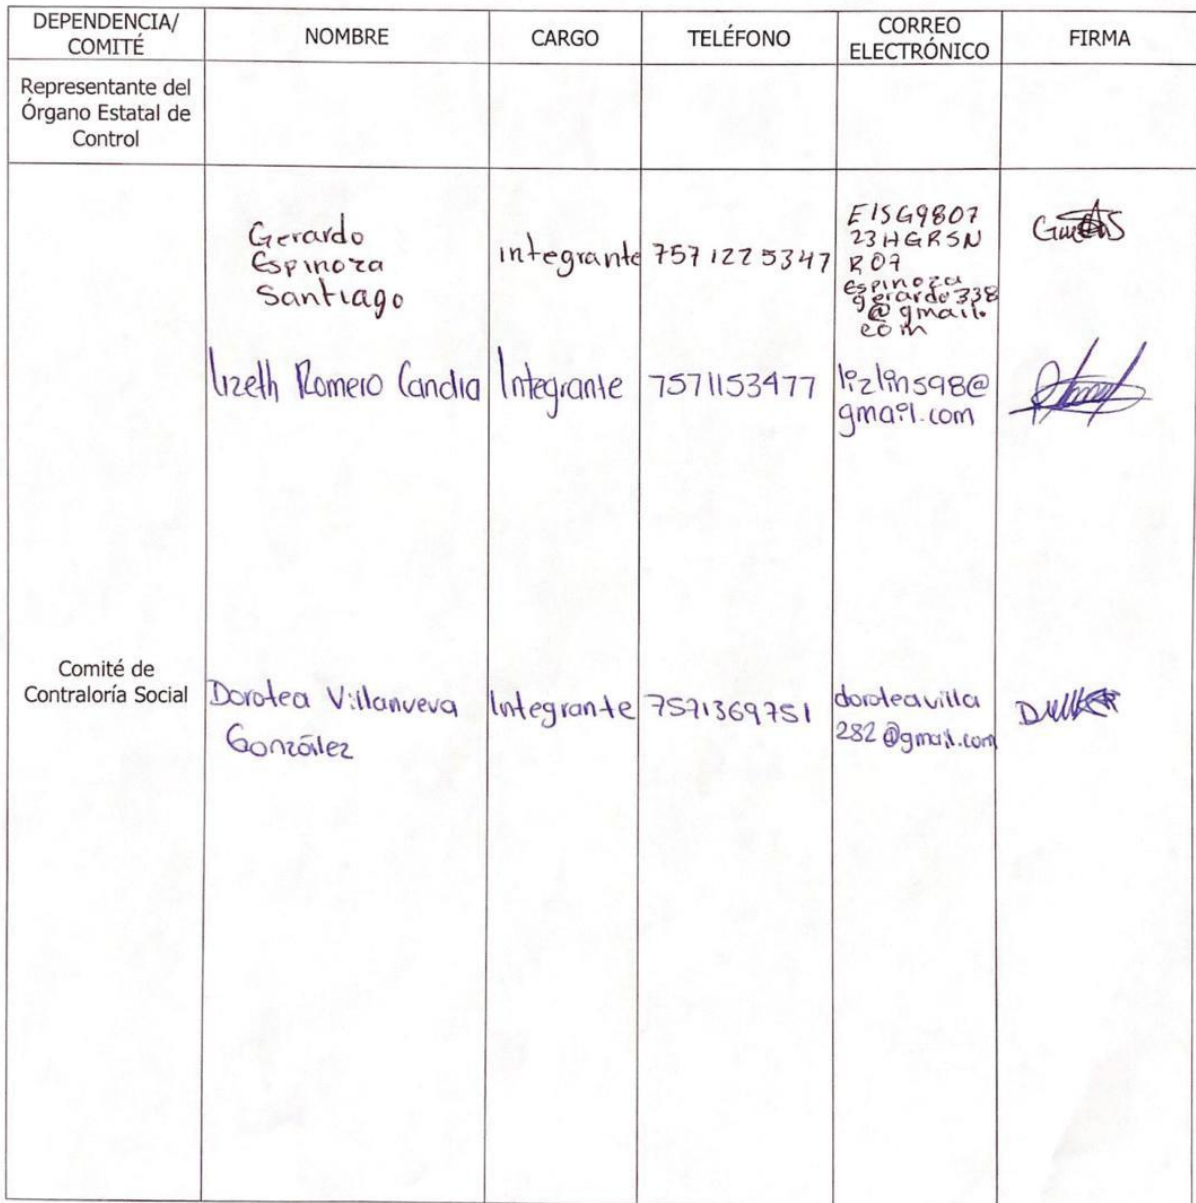 DEPENDENCIA/
COMITÉ
NOMBRE
CARGO
TELÉFONO
CORREO
ELECTRÓNICO
FIRMA
Representante del
Órgano Estatal de
Control
Gerardo
Espinoza
Santiago
integrante
7571225347
EISG9807
23HGRSN
R09
espinoza
gerardo338
@gmail.
com
lizeth Romero Candia
Integrante
7571153477
lizlins98@
gmail.com
Comité de
Contraloría Social
Dorotea Villanueva
González
Integrante
7571369751
doroteavilla
282@gmail.com